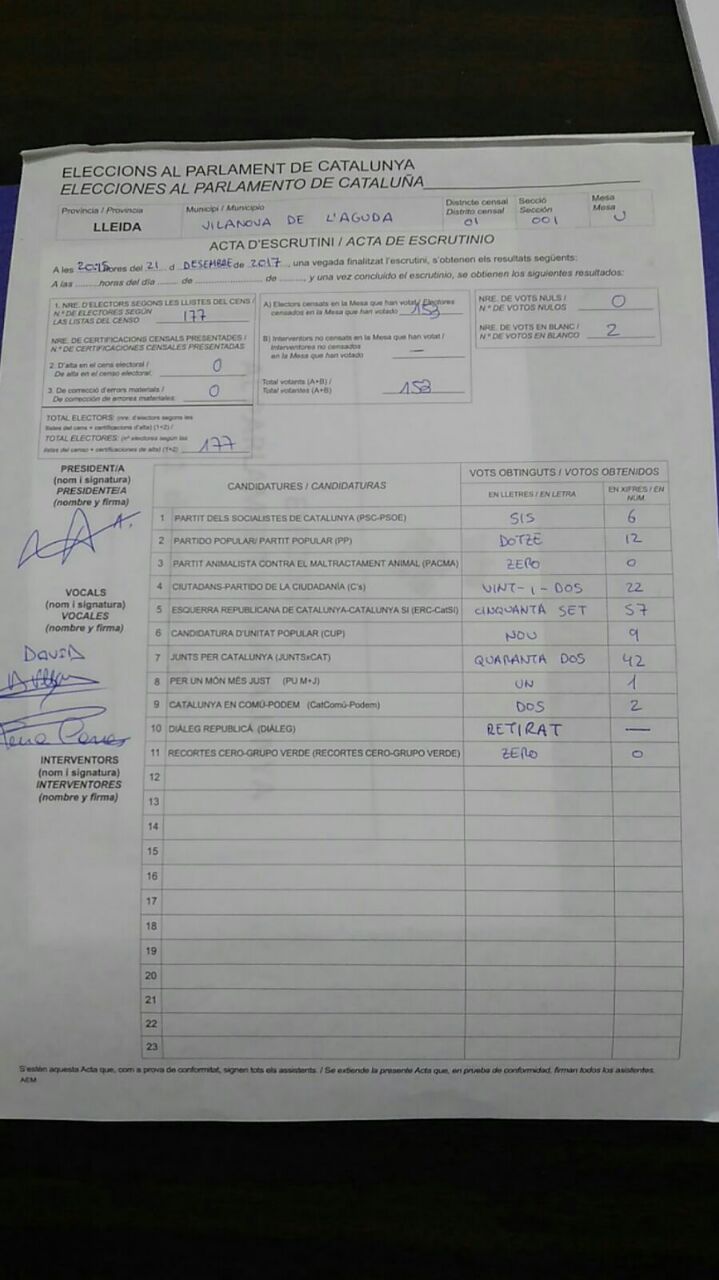 ELECCIONS AL PARLAMENT DE CATALUNYA
ELECCIONES AL PARLAMENTO DE CATALUÑA
Provincia / Provincia
LLEIDA
Municipi / Municipio
VILANOVA DE L'AGUDA
Districte censal
Distrito censal
01
Secció
Sección
001
Mesa
Mesa
U
ACTA D'ESCRUTINI / ACTA DE ESCRUTINIO
A les 20:15 hores del 21 d DESEMBRE de 2017, una vegada finalitzat l'escrutini, s'obtenen els resultats següents:
A las ........horas del día ....... de ........................ de ........, y una vez concluido el escrutinio, se obtienen los siguientes resultados:
1. NRE. D'ELECTORS SEGONS LES LLISTES DEL CENS /
N.º DE ELECTORES SEGÚN
LAS LISTAS DEL CENSO
177
NRE. DE CERTIFICACIONS CENSALS PRESENTADES /
N.º DE CERTIFICACIONES CENSALES PRESENTADAS
2. D'alta en el cens electoral /
De alta en el censo electoral:
0
3. De correcció d'errors materials /
De corrección de errores materiales:
0
TOTAL ELECTORS: (nre. d'electors segons les
llistes del cens + certificacions d'alta) (1+2) /
TOTAL ELECTORES: (nº electores según las
listas del censo + certificaciones de alta) (1+2)
177
A) Electors censats en la Mesa que han votat / Electores
censados en la Mesa que han votado
153
B) Interventors no censats en la Mesa que han votat /
Interventores no censados
en la Mesa que han votado
—
Total votants (A+B) /
Total votantes (A+B)
153
NRE. DE VOTS NULS /
N.º DE VOTOS NULOS
0
NRE. DE VOTS EN BLANC /
N.º DE VOTOS EN BLANCO
2
PRESIDENT/A
(nom i signatura)
PRESIDENTE/A
(nombre y firma)
VOCALS
(nom i signatura)
VOCALES
(nombre y firma)
DAVID
INTERVENTORS
(nom i signatura)
INTERVENTORES
(nombre y firma)
CANDIDATURES / CANDIDATURAS
VOTS OBTINGUTS / VOTOS OBTENIDOS
EN LLETRES / EN LETRA
EN XIFRES / EN NÚM.
1 PARTIT DELS SOCIALISTES DE CATALUNYA (PSC-PSOE) SIS 6
2 PARTIDO POPULAR/ PARTIT POPULAR (PP) DOTZE 12
3 PARTIT ANIMALISTA CONTRA EL MALTRACTAMENT ANIMAL (PACMA) ZERO 0
4 CIUTADANS-PARTIDO DE LA CIUDADANÍA (C's) VINT-I-DOS 22
5 ESQUERRA REPUBLICANA DE CATALUNYA-CATALUNYA SÍ (ERC-CatSí) CINQUANTA SET 57
6 CANDIDATURA D'UNITAT POPULAR (CUP) NOU 9
7 JUNTS PER CATALUNYA (JUNTSxCAT) QUARANTA DOS 42
8 PER UN MÓN MÉS JUST (PU M+J) UN 1
9 CATALUNYA EN COMÚ-PODEM (CatComú-Podem) DOS 2
10 DIÀLEG REPUBLICÀ (DIÀLEG) RETIRAT —
11 RECORTES CERO-GRUPO VERDE (RECORTES CERO-GRUPO VERDE) ZERO 0
12
13
14
15
16
17
18
19
20
21
22
23
S'estén aquesta Acta que, com a prova de conformitat, signen tots els assistents. / Se extiende la presente Acta que, en prueba de conformidad, firman todos los asistentes.
AEM